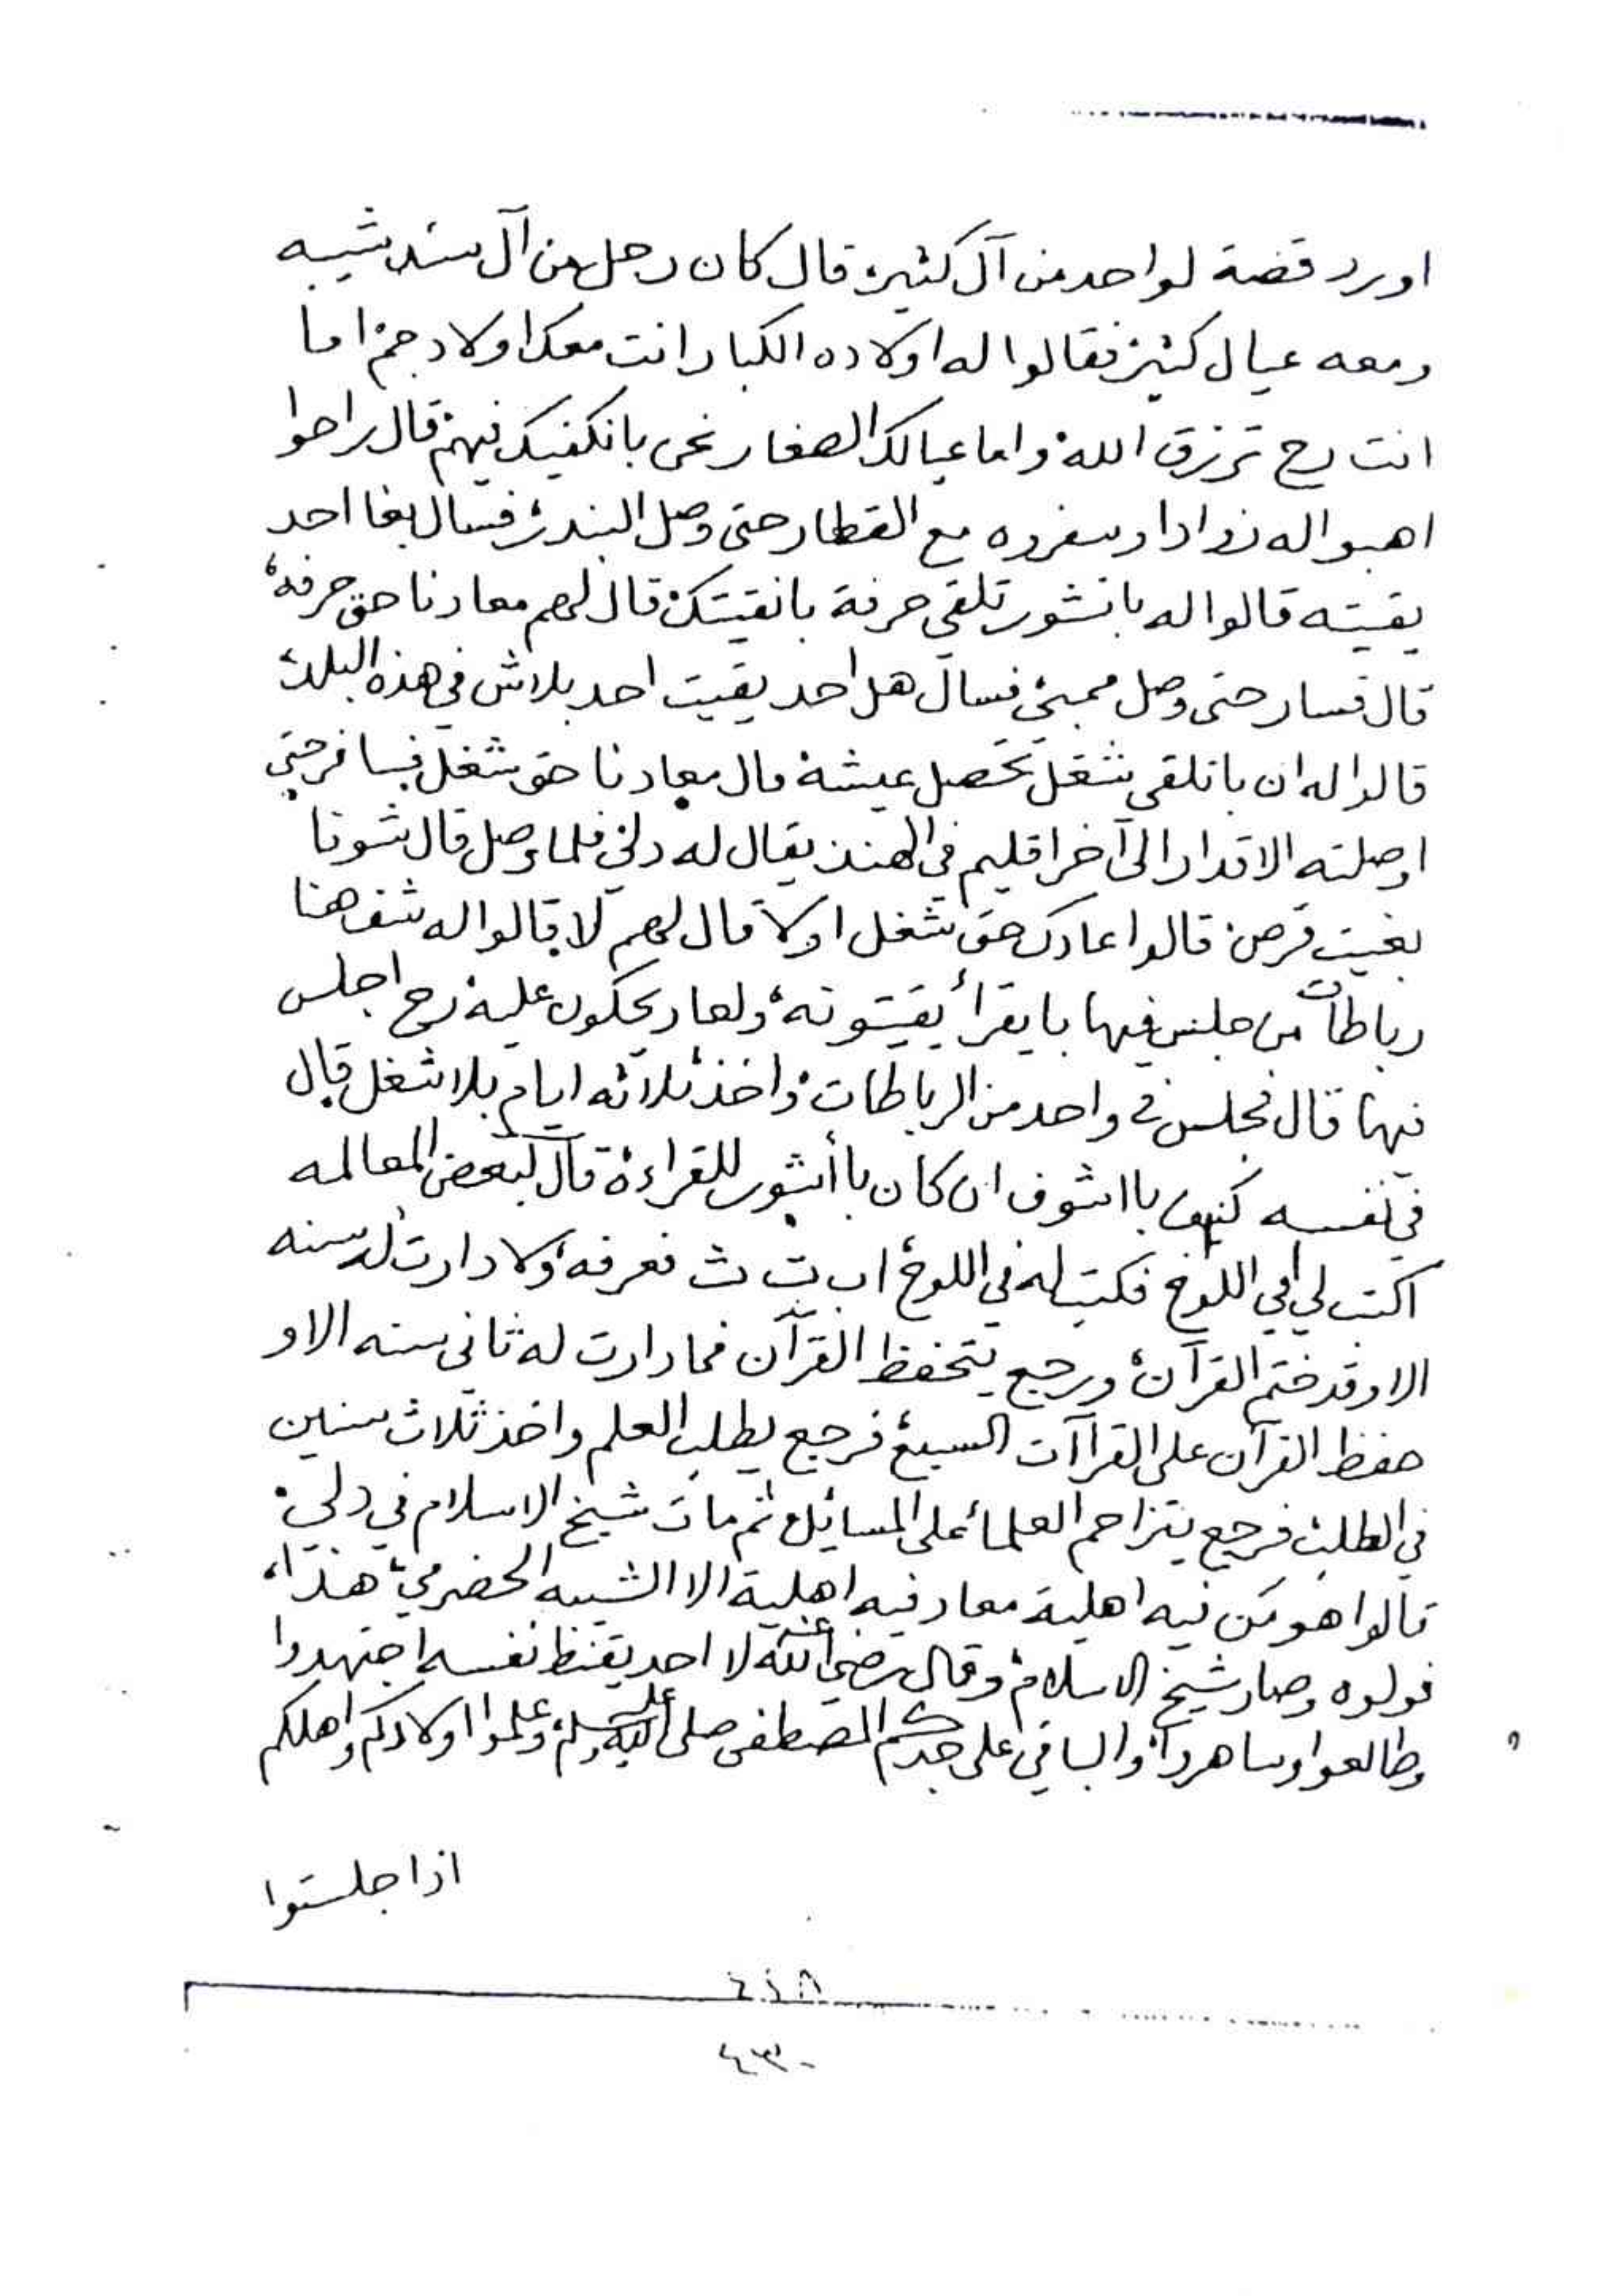 اورد قصة لواحد من آل كثير، قال كان رجل من آل سند شيبه
ومعه عيال كثير، فقالوا له اولاده الكبار انت معك اولاد جم، اما
انت رح ترزق الله، واما عيالك الصغار نحن بانكفيك فيهم، قال راحوا
اهبوا له زوادا وسفروه مع القطار حتى وصل البندر، فسال بغا احد
يقيته قالوا له باتشور تلقي حرفة بانقيتك، قال لهم معادنا حق حرفة،
قال فسار حتى وصل ممبي، فسال هل احد يقيت احد بلاش في هذه البلد،
قالوا له ان باتلقي شغل تحصل عيشة، قال معادنا حق شغل فسافر حتى
اوصلته الاقدار الى آخر اقليم في الهند يقال له دلي، فلما وصل قال شونا
بغيت قرص، قالوا عادك حق شغل اولا قال لهم لا قالوا له شف هنا
رباطات من جلس فيها بايقرأ يقيتونه، ولعاد يحكون عليه، رح اجلس
فيها، قال فجلس في واحد من الرباطات، واخذ ثلاثه ايام بلا شغل قال
في نفسه بااشوف ان كان باأشور للقراءة، قال لبعض المعالمه
اكتب لي في اللوح، فكتب له في اللوح، اب ت ث فعرفه، ولا دارت له سنه
الا وقد ختم القرآن، ورجع يتحفظ القرآن فما دارت له ثاني سنه الا و
حفظ القرآن على القراآت السبع، فرجع يطلب العلم واخذ ثلاث سنين
في الطلب، فرجع يتزاحم العلماء على المسائل، ثم مات شيخ الاسلام في دلي،
قالوا هو من فيه اهلية، معاد فيه اهلية الا الشيبه الحضرمي، هذا،
فولوه وصار شيخ الاسلام، وقال رضي الله عنه لا احد يقنط نفسه اجتهدوا
وطالعوا وساهروا، والباقي على جدكم المصطفى صلى الله عليه وسلم، وعلموا اولادكم واهلكم
اذا جلستوا
٤٣٠